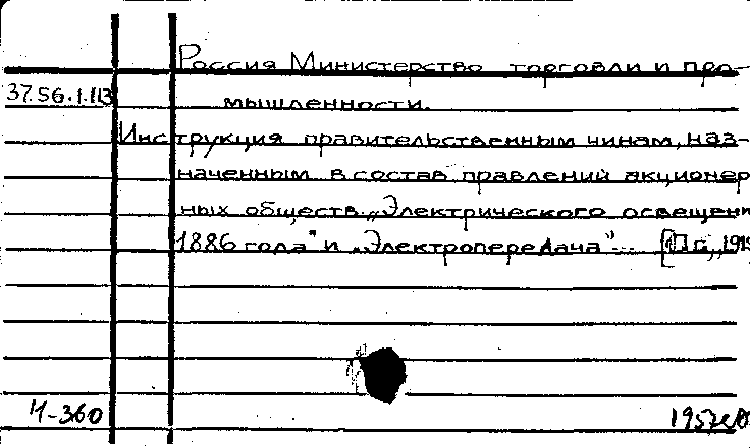 Россия Министерство торговли и про-
37.56.1.113 мышленности.
Инструкция правительственным чинам, наз-
наченным в состав правлений акционер
ных обществ „Электрического освещени
1886 года" и „Электропередача"...
И-360